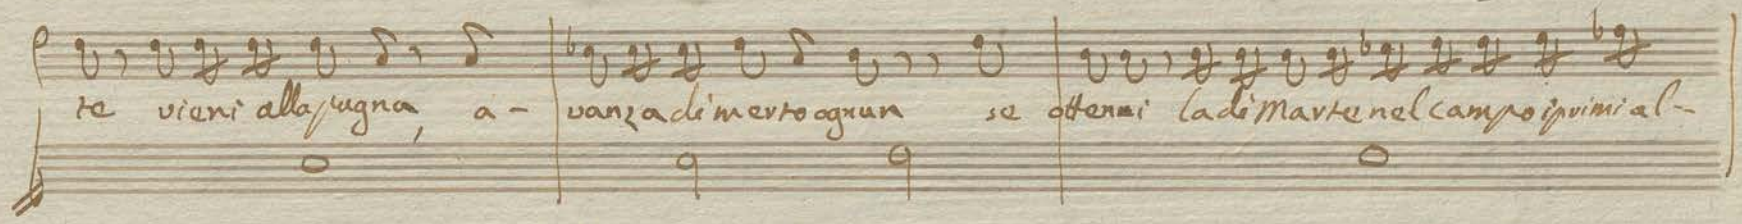 te vieni alla pugna, a-vanza di merto ognun se ottenni la di Marte nel campo i primi al-